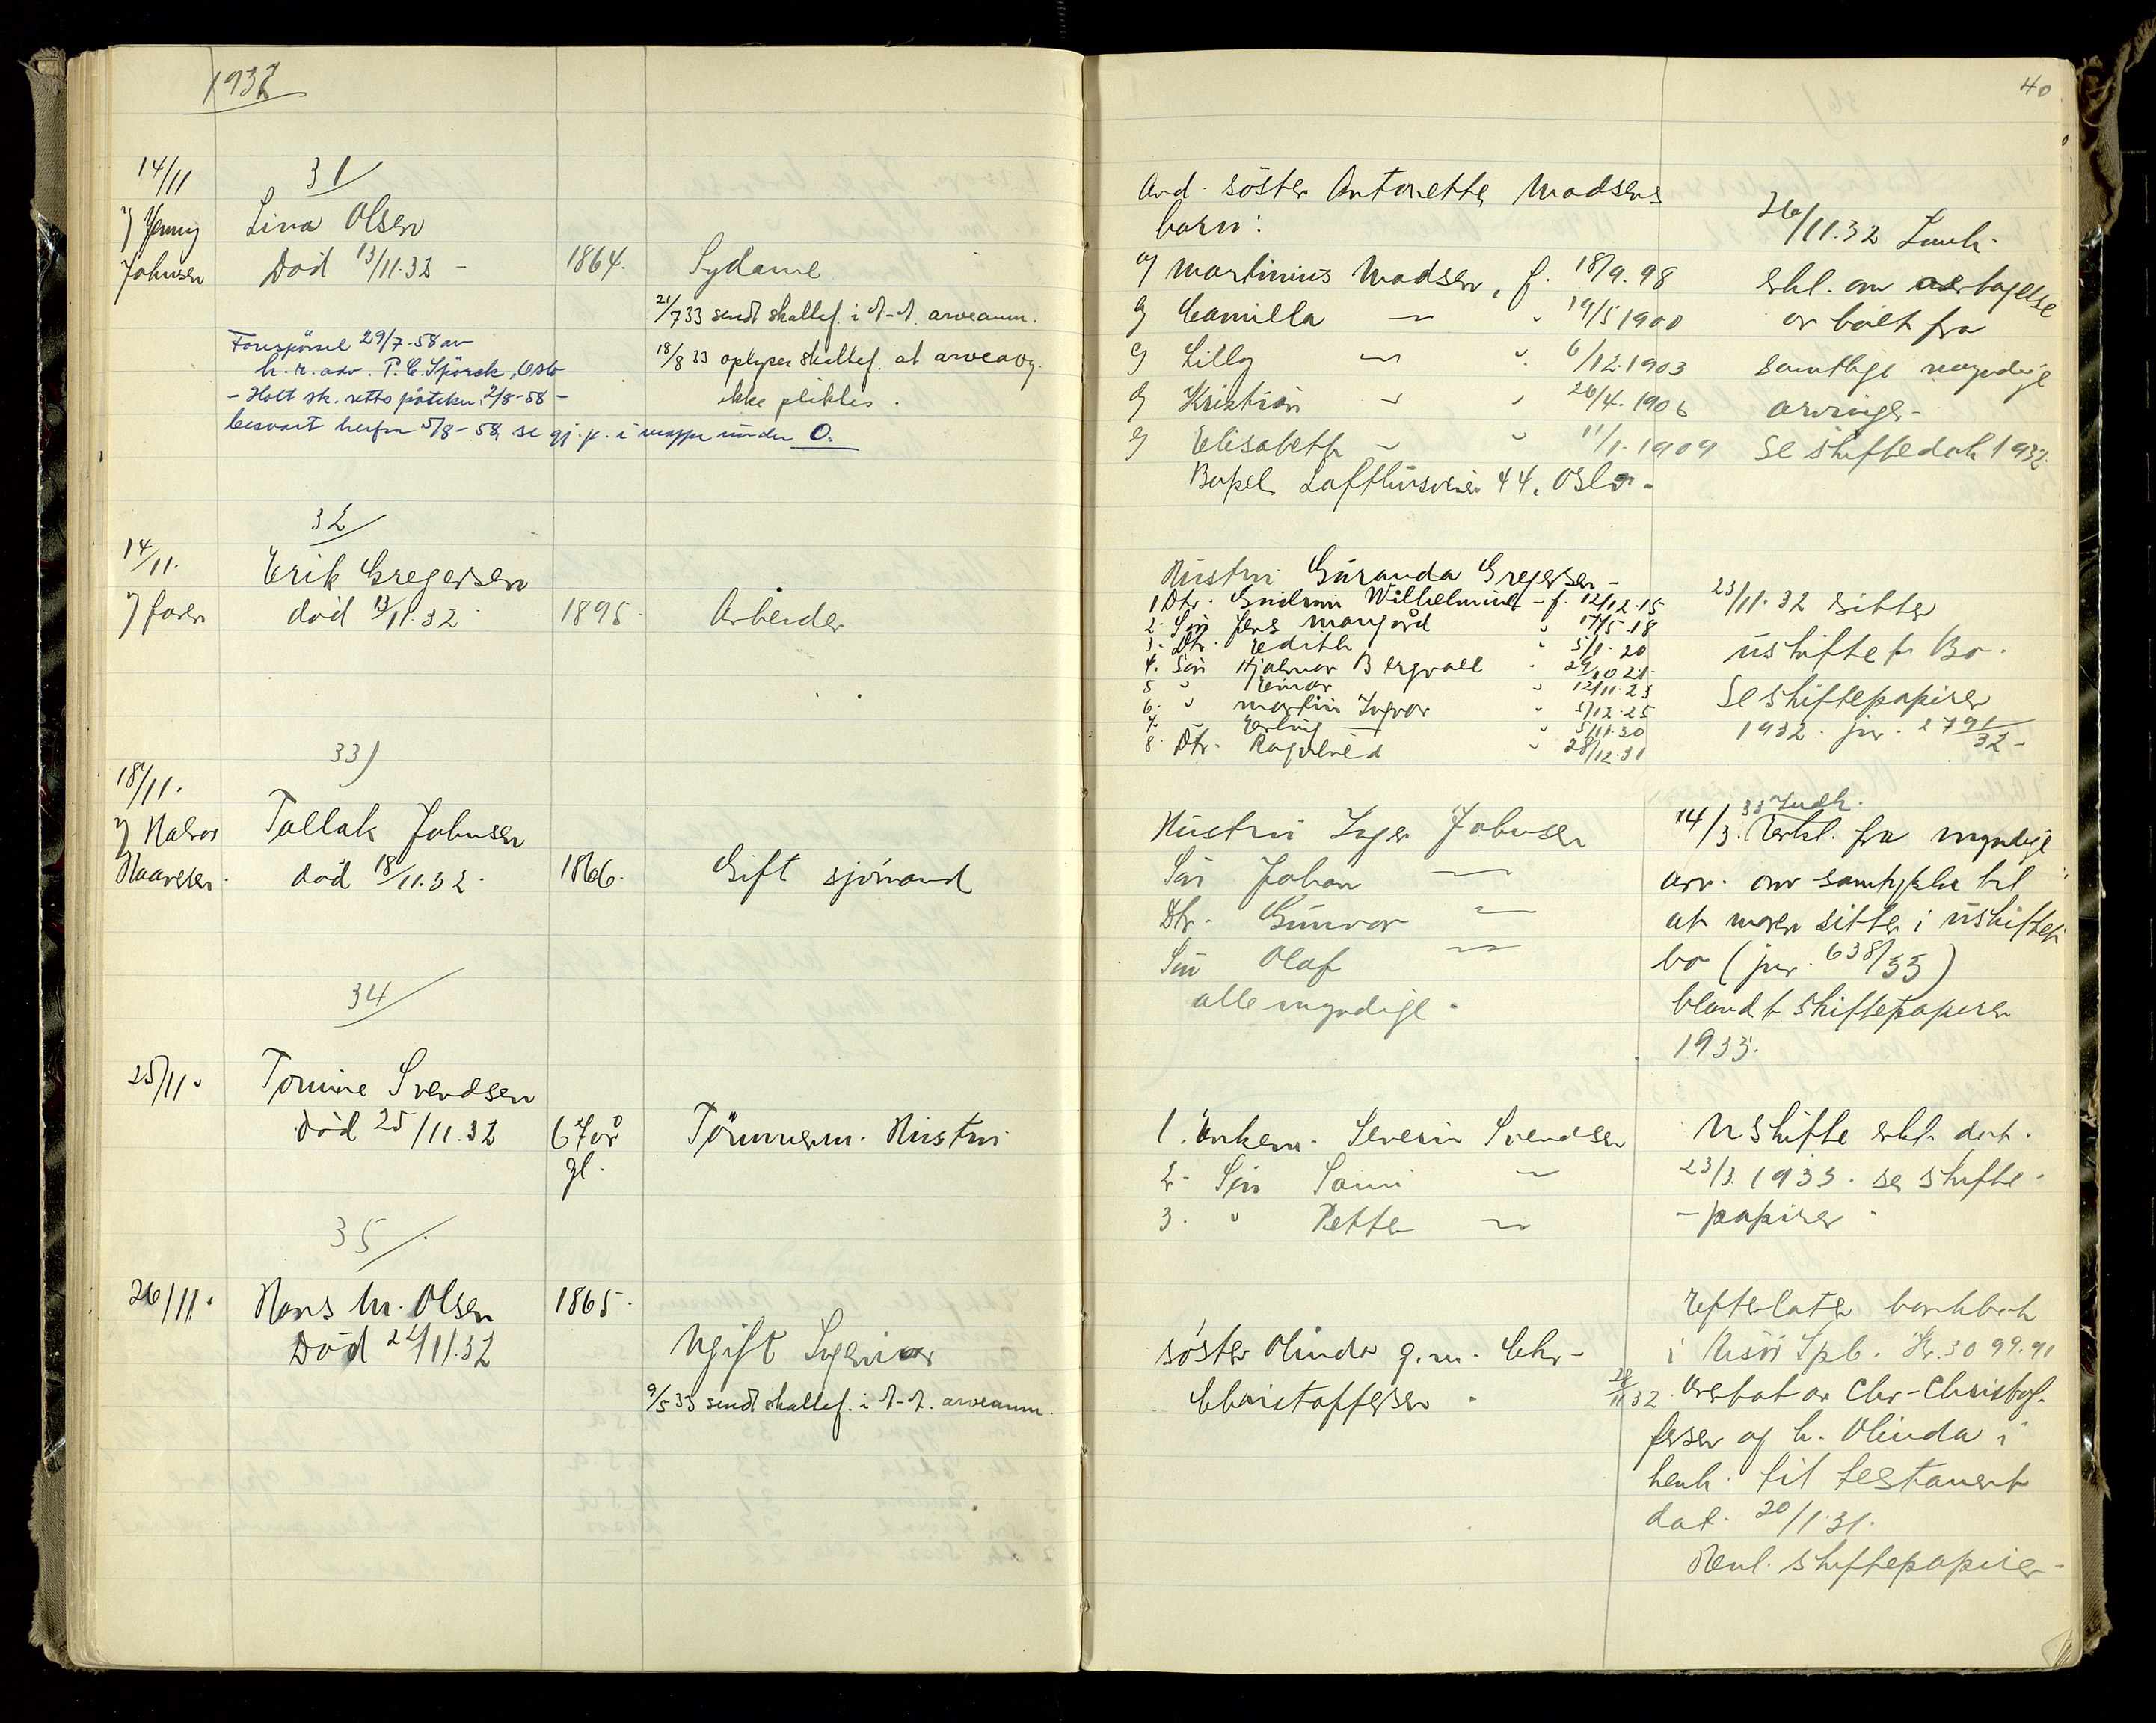 1932
40
14/11
31/
v/ Jenny
Johnsen
Lina Olsen
Död 13/11.32 -
1864.
Sydame
21/7 33 sendt skattef. i A-A. arveanm.
18/8 33 oplyser skattef. at arveavg.
ikke pliktes.
Forespörsel 29/7-58 av
h.r. adv. P. C. Spörck, Oslo
- Holt sk. retts påtekn. 2/8-58 -
besvart herfra 5/8-58, se gj.p. i mappe under O.
Avd. söster Antonette Madsens
barn:
a/ Martinius Madsen, f. 18/9.98
b/ Camilla — " 19/5 1900
c/ Lilly — " 6/12.1903
d/ Kristian — " 26/4.1906
e/ Elisabeth — " 11/1.1909
Bopel Lofthusveien 44, Oslo.
26/11.32 Innk.
erkl. om overtagelse
av boet fra
samtlige myndige
arvinger-
Se skiftedok 1932.
32/
14/11.
v/ faren
Erik Gregersen
död 13/11.32
1895.
Arbeider
Hustru Guranda Gregersen -
1 Dtr. Gudrun Wilhelmine - f. 12/12.15
2. Sön Jens Mangård " 17/5.18
3. Dtr. Edith " 5/1.20
4. Sön Hjalmar Bergvall " 29/10 21.
5 " Einar " 12/11.23
6. " Martin Ingvar " 5/12.25
7. " Erling — " 5/11.30
8. Dtr. Ragnhild " 28/12.31
23/11.32 sitter
uskiftet Bo.
Se skiftepapirer
1932. jnr. 2791/32-
33)
18/11.
v/ Halvor
Haavesen.
Tallak Johnsen
död 18/11.32.
1866.
Gift sjömand
Hustru Inger Johnsen
Sön Johan —
Dtr. Gunvor —
Sön Olaf —
alle myndige.
14/3.33 Indk.
Erkl. fra myndige
arv. om samtykke til
at moren sitter i uskiftet
bo (jnr. 638/33)
blandt skiftepapirer
1933.
34/
25/11.
Tomine Svendsen
Död 25/11.32
67 år
gl.
Tömmerm. Hustru
1. Enkem. Severin Svendsen
2. Sön —
3. " Petter —
Uskifte erkl. dat.
23/3 1933. se skifte-
-papirer
35/.
26/11.
Hans M. Olsen
Död 21/11.32
1865.
Ugift Ingeniør
9/5 33 sendt skattef. i A-A. arveanm.
söster Olinda g.m. Chr-
Christoffersen.
Efterlater bankbok
i Risör Spb. Kr. 3099.91
28/11 32. Overtat av Chr-Christof-
fersen og h. Olinda i
henh. til testament
dat. 20/1.31.
Henl. skiftepapirer-